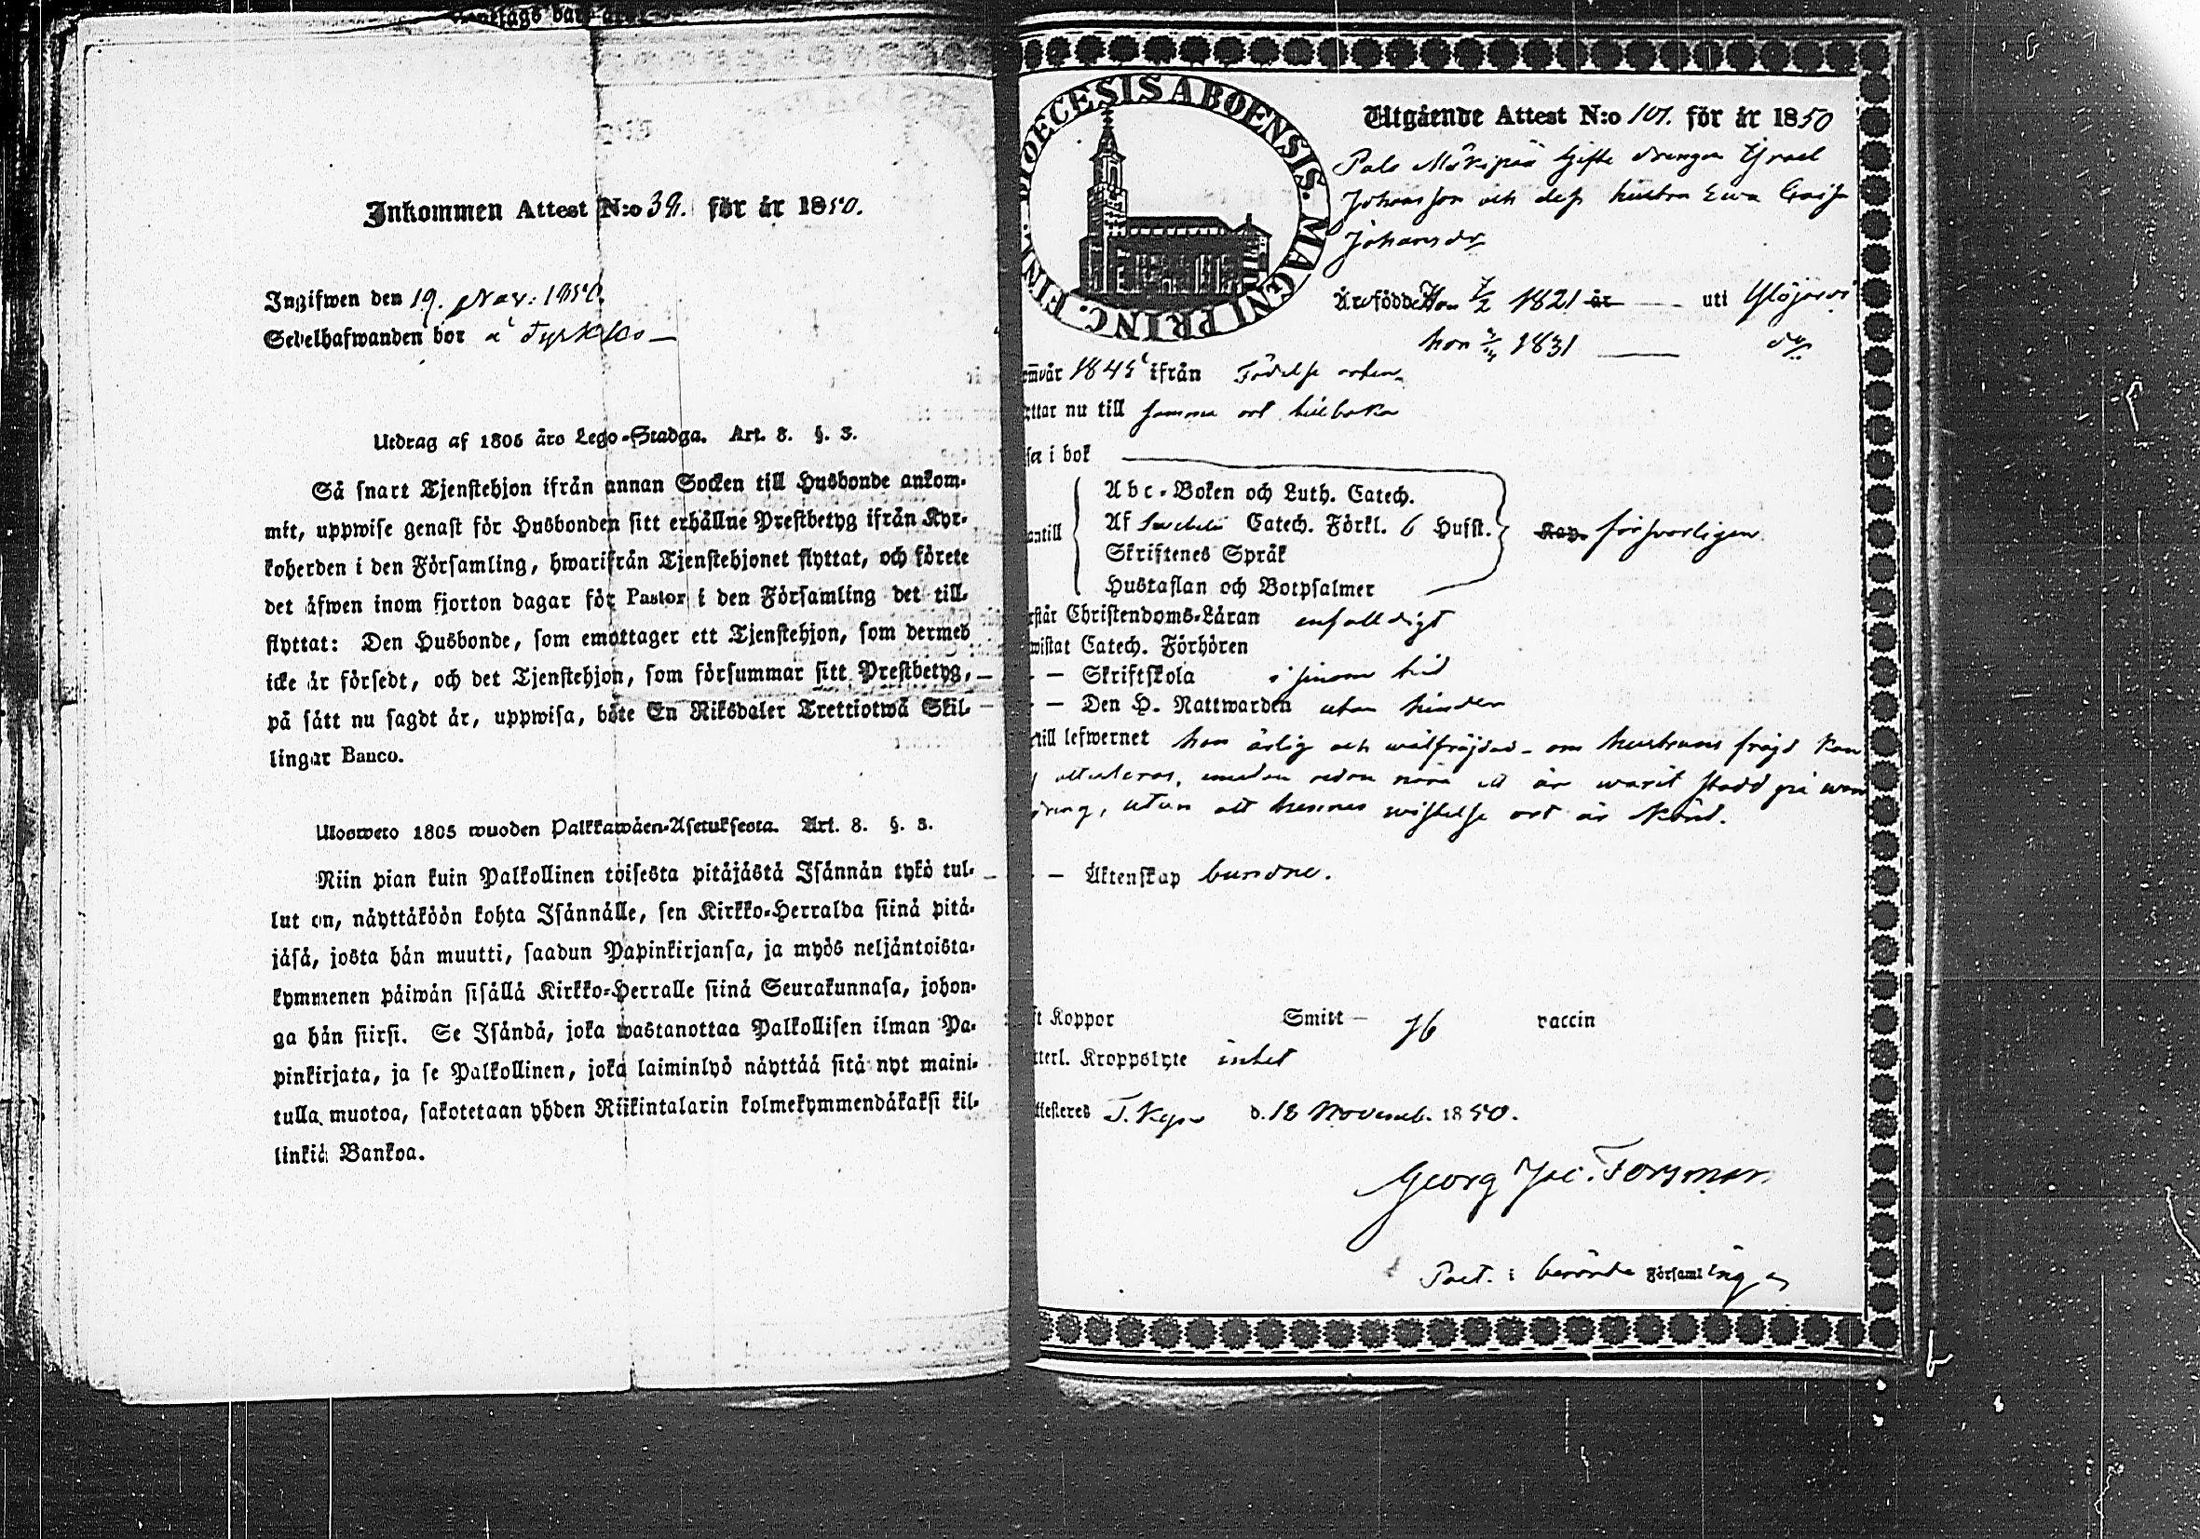 Inkommen Attest N:o 39. för år 1850.
Ingifwen den 19. Nov: 1850.
Sedelhafwanden bor å Tyrkkö
Utdrag af 1805 års Lego-Stadga. Art. 8. §. 3.
Så snart Tjenstehjon ifrån annan Socken till Husbonde ankom-
mit, uppwise genast för Husbonden sitt erhållne Prestbetyg ifrån Kyr-
koherden i den Församling, hwarifrån Tjenstehjonet flyttat, och förete
det äfwen inom fjorton dagar för Pastor i den Församling det till-
flyttat: Den Husbonde, som emottager ett Tjenstehjon, som dermed
icke är försedt, och det Tjenstehjon, som försummar sitt Prestbetyg,
på sätt nu sagdt är, uppwisa, böte En Riksdaler Trettiotwå Skil-
lingar Banco.
Ulosweto 1805 wuoden Palkkawäen-Asetuksesta. Art. 8. §. 3.
Niin pian kuin Palkollinen toisesta pitäjästä Isännän tykö tul-
lut on, näyttäköön kohta Isännälle, sen Kirkko-Herralda siinä pitä-
jäsä, josta hän muutti, saadun Papinkirjansa, ja myös neljäntoista-
kymmenen päiwän sisällä Kirkko-Herralle siinä Seurakunnasa, johon-
ga hän siirsi. Se Isändä, joka wastanottaa Palkollisen ilman Pa-
pinkirjata, ja se Palkollinen, joka laiminlyö näyttää sitä nyt maini-
tulla muotoa, sakotetaan yhden Riikintalarin kolmekymmendäkaksi kil-
linkiä Bankoa.
DIOECESIS ABOENSIS. MAGNI PRINC. FINL.
Utgående Attest N:o 101. för år 1850
Palo Mäkipää Gifte drengen Israel
Johansson och dess hustru Ewa Caisa
Johansdr
Är född Han 7/2 1821 år uti Ylöjärvi
hon 1831 do
ifrån Födelse orten
ttar nu till samma ort tillbaka
ser i bok
antill
Abc-Boken och Luth. Catech.
Af Catech. Förkl. 6 Husst.
Skriftenes Språk
Hustaflan och Botpsalmer
Kap. försvarligen
rstår Christendoms-Läran enfalldigt
wistat Catech. Förhören
— Skriftskola i sinom tid
— Den H. Nattwarden utan hinder
till lefwernet han ärlig och wälfräjdad - om hustruns fräjd kan
attesteras, emedan redan nära ett år warit stadd på wan
dring, utan att hennes wistelse ort är känd.
— Äktenskap bundne.
t Koppor Smitt- vaccin
tterl. Kroppslyte intet
ttesteres T. Kyro d. 18 Novemb. 1850.
Georg Jac. Forsman
Past. i berörde Församling